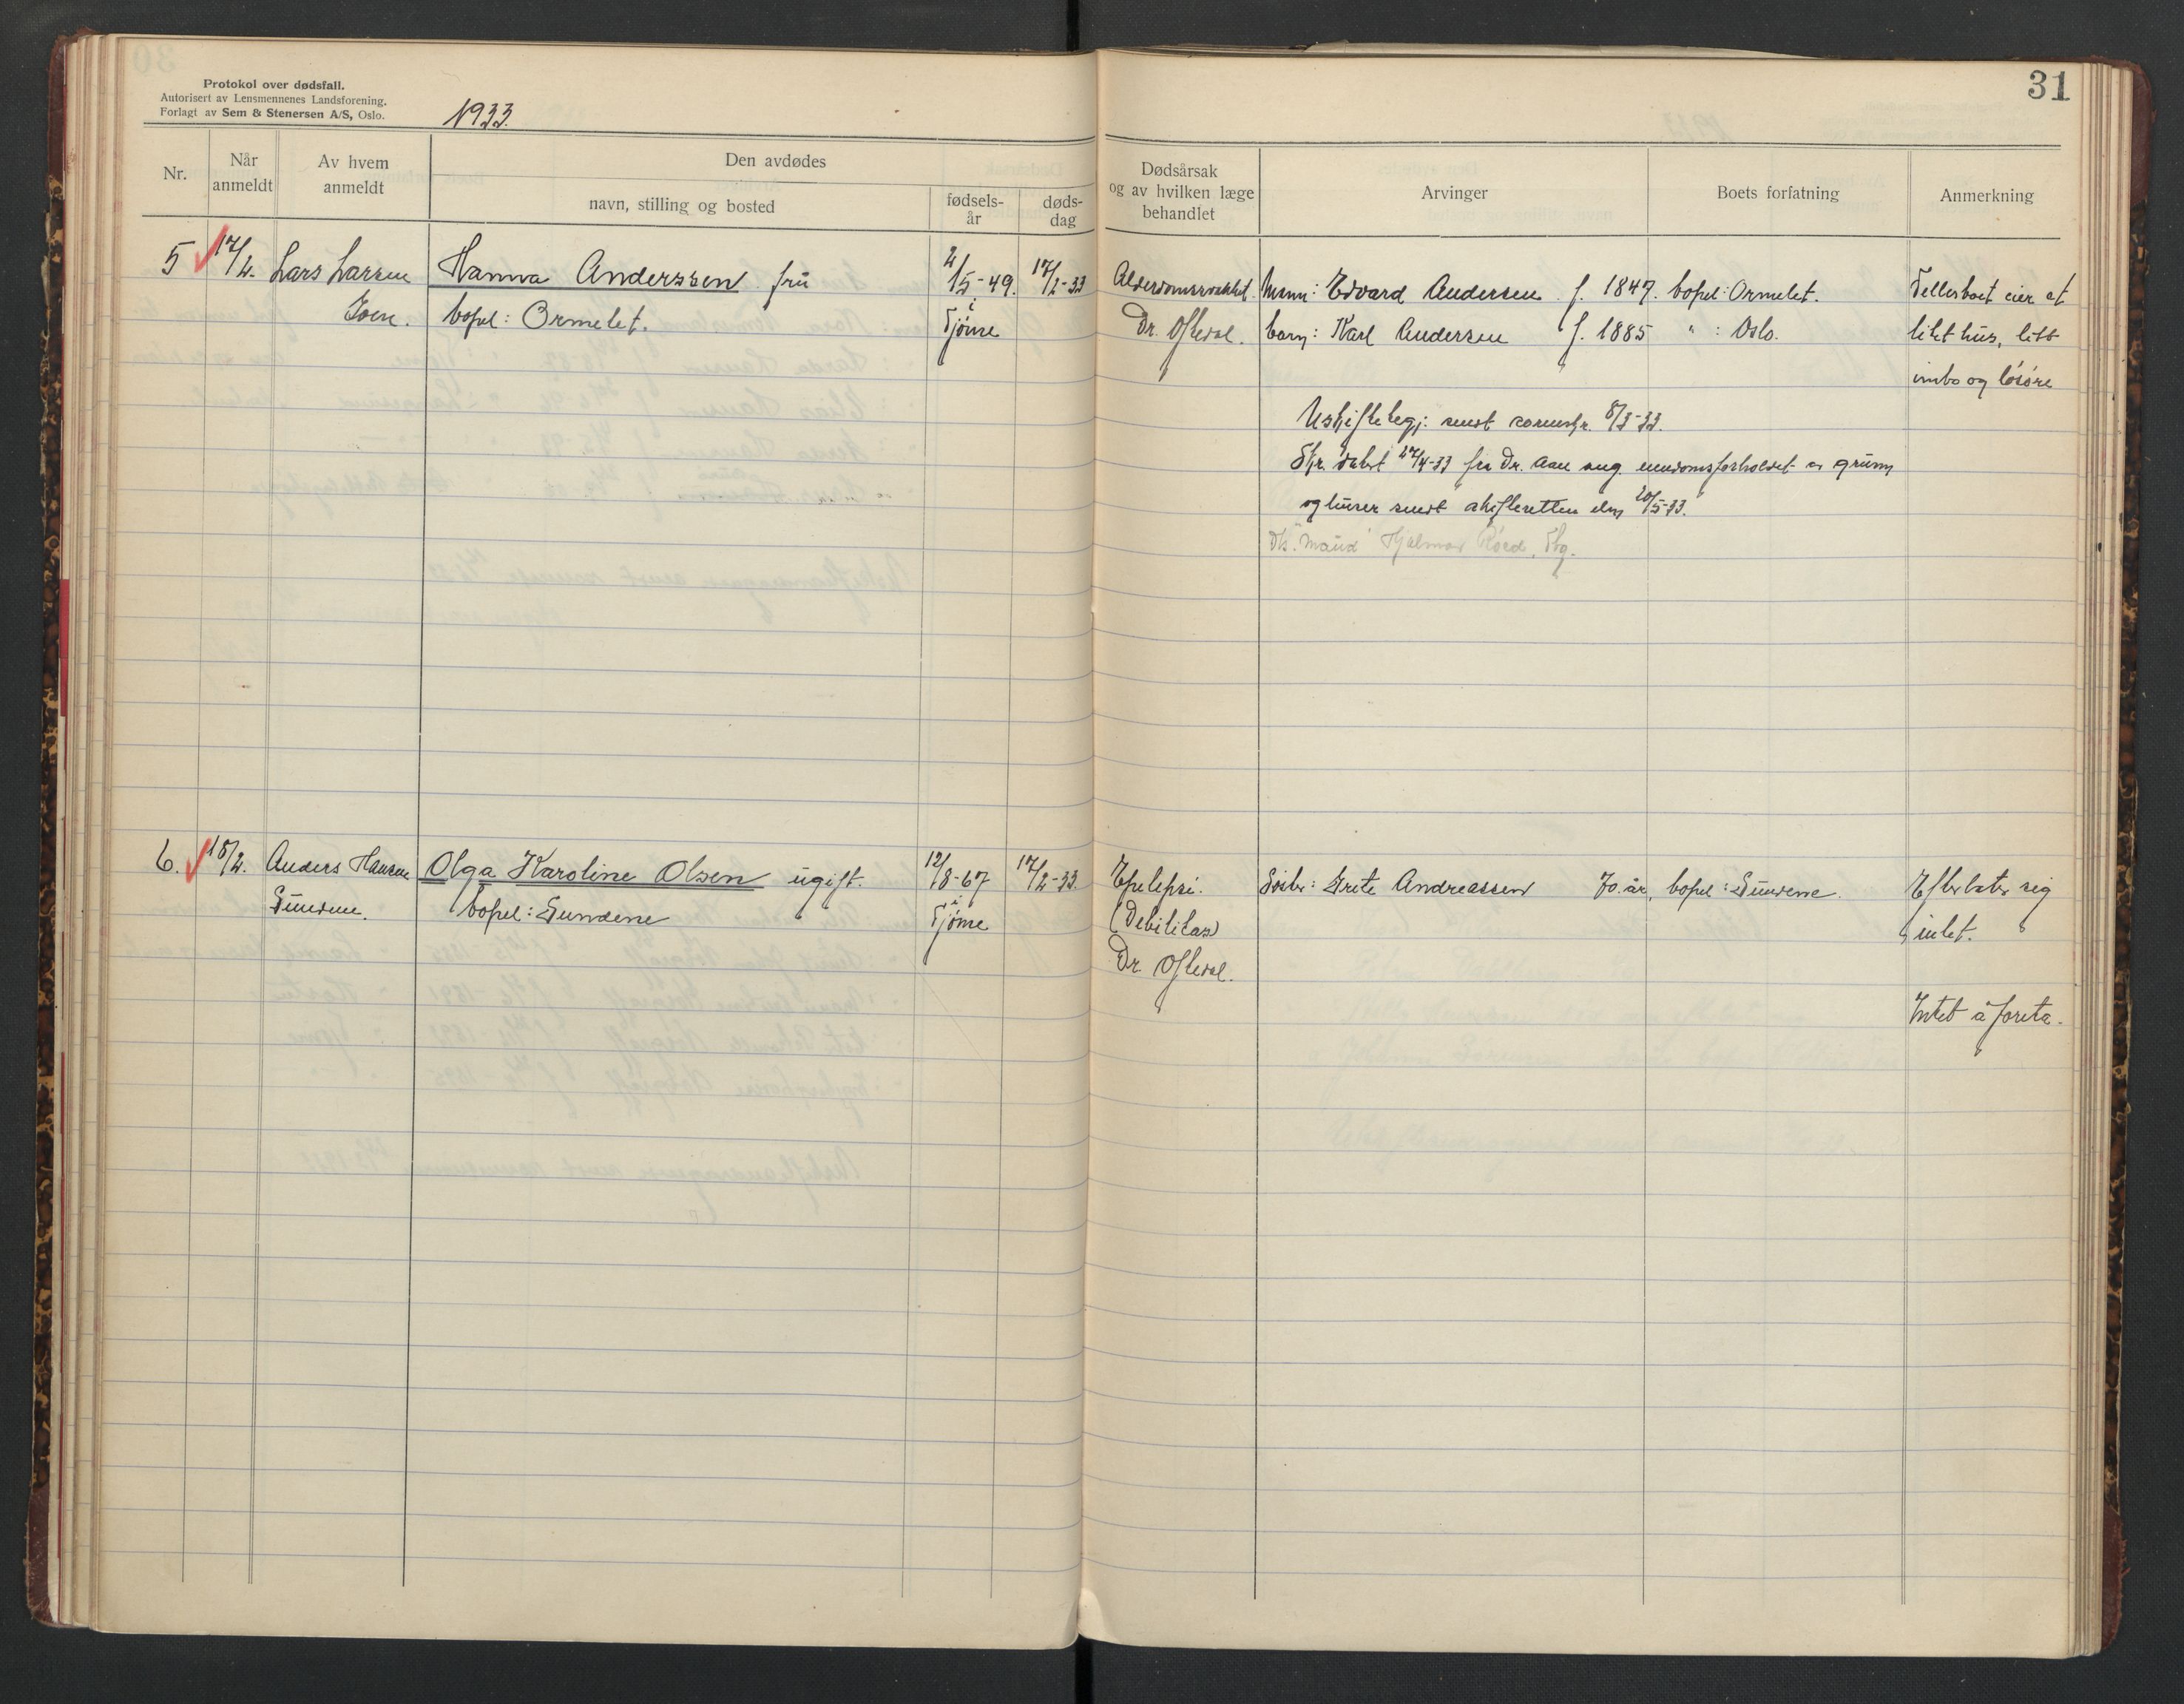 Protokol over dødsfall.
Autorisert av Lensmennenes Landsforening.
Forlagt av Sem & Stenersen A/S, Oslo.
1933.
31
Nr.
Når anmeldt
Av hvem anmeldt
Den avdødes
navn, stilling og bosted
fødsels-år
døds-dag
Dødsårsak og av hvilken læge behandlet
Arvinger
Boets forfatning
Anmerkning
5 17/2. Lars Larsen Hanna Anderssen fru 2/5-49. 17/2-33 Alderdomssvakhet. Mann: Edvard Andersen f. 1847. bopel: Ormelet. Fellesboet eier et
bopel: Ormelet. i Tjøme Dr. Oftedal. barn: Karl Andersen f. 1885 " : Oslo. litet hus, litt
innbo og løsøre
Uskiftebegj: sendt sorenskr. 8/3-33.
Skr. datert 27/4-33 fra Dr. Aall ang. eiendomsforholdet av grunn
og huser sendt skifteretten den 20/5-33.
"Maud" Hjalmar Tbg.
6. 18/2. Anders Hansen Olga Karoline Olsen ugift. 12/8-67 17/2-33. Epelepsi. Søster: Grete Andreassen 70 år, bopel: Sundene. Efterlater sig
Sundene. bopel: Sundene i Tjøme (Debilitas) intet.
Dr. Oftedal.
Intet å foreta.